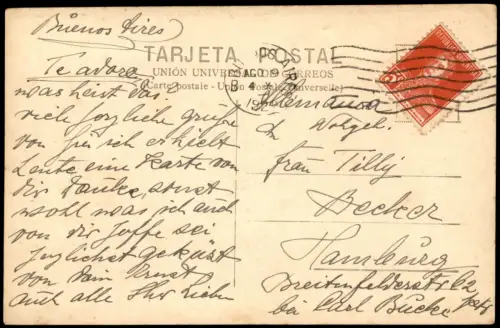 Buenos Aires
TARJETA POSTAL
UNIÓN UNIVERSAL DE CORREOS
(Carte postale - Union Postale Universelle)
AGO 9
Te adora
was heist das.
viele herzliche grüße
von hir ich erhielt
heute eine Karte von
dir Danke, sonst
wohl was ich auch
von dir hoffe sei
herzlichst geküst
von dein Ernst
auch alle Ihr Lieben
Alemania
Frau Tilly
Becker
Hamburg
Breitenfelderstr 62
bei Carl